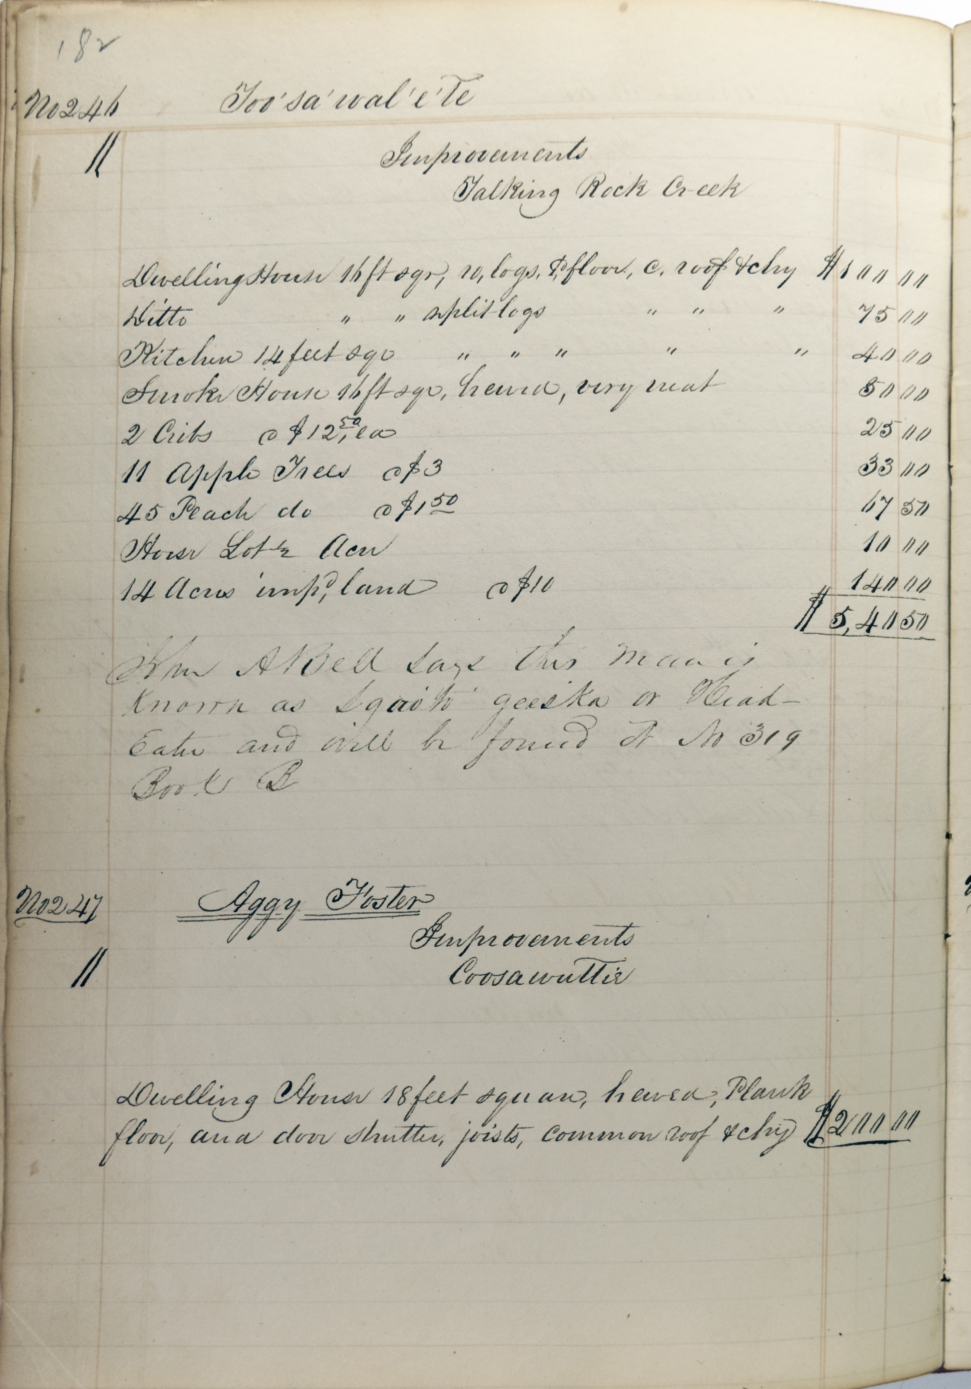 182
No 246 Too'sa'wal'e'te
Improvements
Talking Rock Creek
Dwelling House 16 ft sqr, r, logs, P, floor, c. roof & chy $100 00
Ditto " " split logs " " " 75 00
Kitchen 14 feet sqr " " " " " 40 00
Smoke House 16 ft sqr, hewed, very neat 50 00
2 Cribs @ $12.50 ea 25 00
11 Apple Trees @ $3 33 00
45 Peach do @ $1 50 67 50
House Lot ½ Acre 10 00
14 Acres imp'd, land @ $10 140 00
$5,40 50
Wm A Bell says this man is
known as geeska or Head-
Eater and will be found at No 319
Book B
No 247 Aggy Foster
Improvements
Coosawattie
Dwelling House 18 feet square, hewed, Plank
floor, and door shutter, joists, common roof & chy $200 00